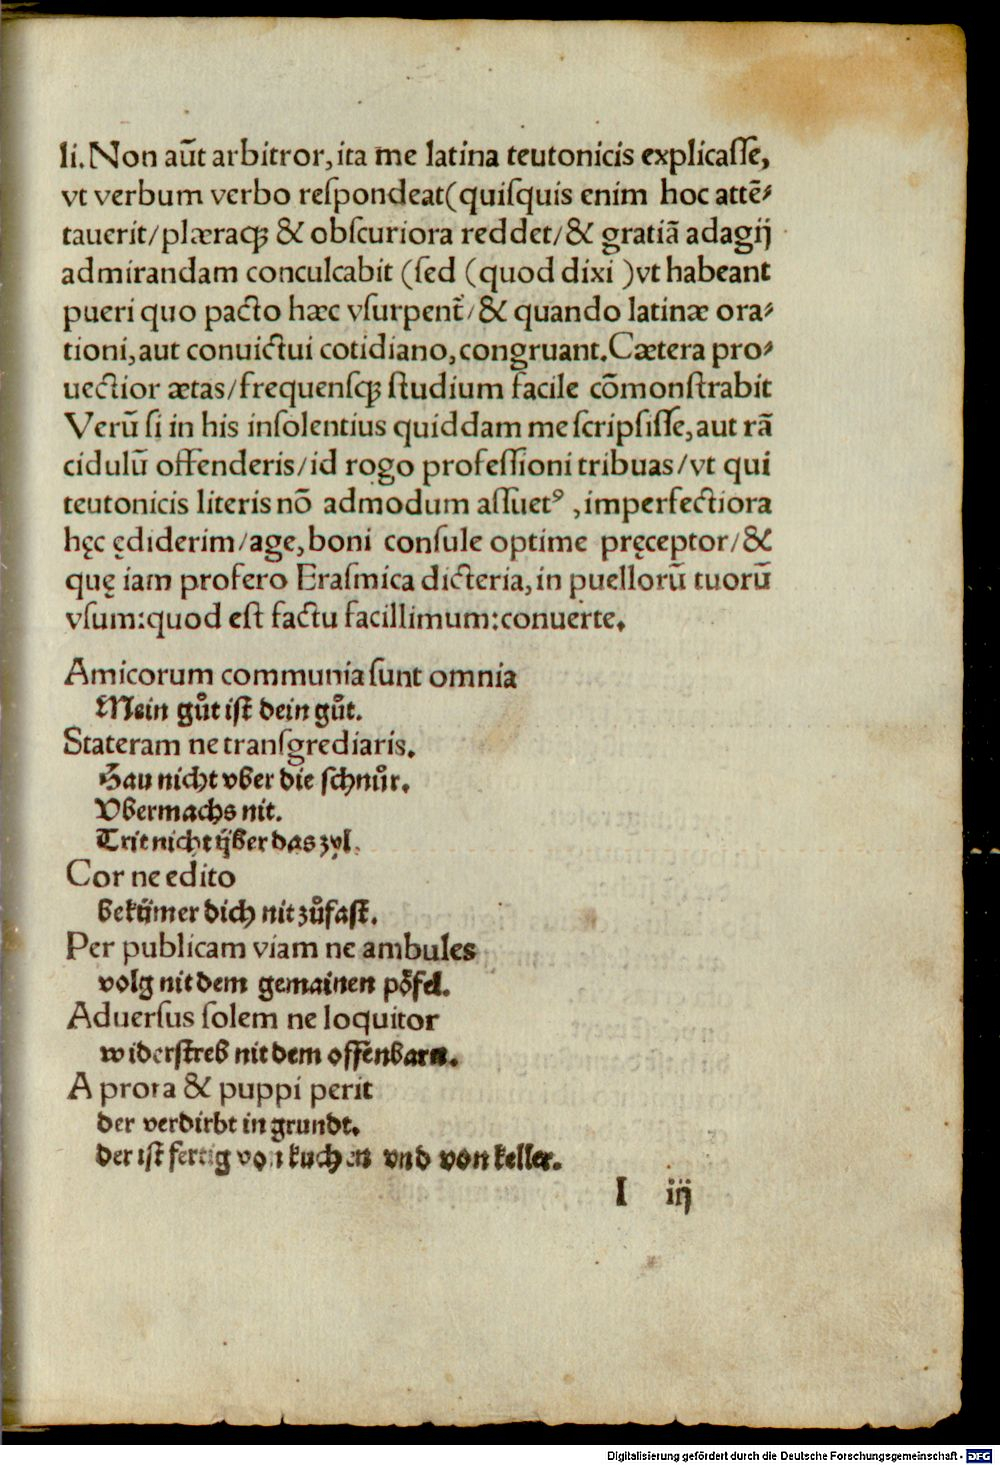 li. Non aūt arbitror, ita me latina teutonicis explicaſſe,
vt verbum verbo reſpondeat (quiſquis enim hoc attē⸗
tauerit/ plæraqꝫ & obſcuriora reddet/ & gratiā adagij
admirandam conculcabit (ſed (quod dixi ) vt habeant
pueri quo pacto hæc vſurpent̄/ & quando latinæ ora⸗
tioni, aut conuictui cotidiano, congruant. Cætera pro⸗
uectior ætas/ frequenſqꝫ ſtudium facile cōmonſtrabit
Verū ſi in his inſolentius quiddam me ſcripſiſſe, aut rā
cidulū offenderis/ id rogo profeſſioni tribuas/ vt qui
teutonicis literis nō admodum aſſuetꝰ , imperfectiora
hęc ędiderim/ age, boni conſule optime pręceptor/ &
quę iam profero Eraſmica dicteria, in puellorū tuorū
vſum: quod eſt factu facillimum: conuerte.
Amicorum communia ſunt omnia
Mein gůt iſt dein gůt.
Stateram ne tranſgrediaris.
Hau nicht vber die ſchnůr.
Vbermachs nit.
Trit nicht ÿber das zyl.
Cor ne edito
bekÿmer dich nit zůfaſt.
Per publicam viam ne ambules
volg nit dem gemainen poͤfel.
Aduerſus ſolem ne loquitor
widerſtreb nit dem offenbarn.
A prora & puppi perit
der verdirbt in grundt.
der iſt fertig von kuchen vnd von keller.
I iij
Digitalisierung gefördert durch die Deutsche Forschungsgemeinschaft - DFG